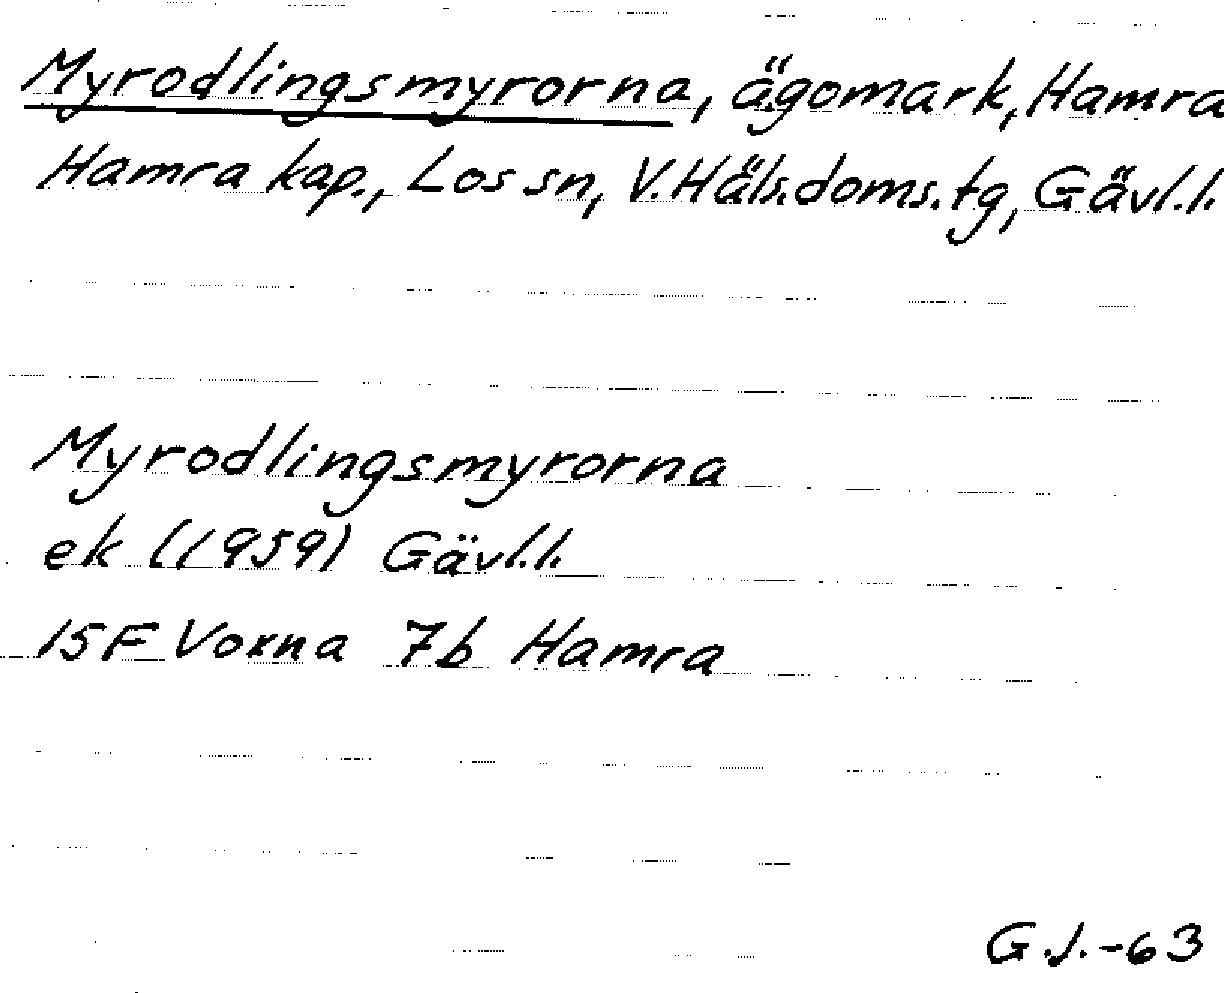 Myrodlingsmyrorna, ägomark, Hamra
Hamra kap., Los sn, V.Häls.doms.tg, Gävl.l.
Myrodlingsmyrorna
ek (1959) Gävl.l.
15F Voxna 7b Hamra
G.J.-63